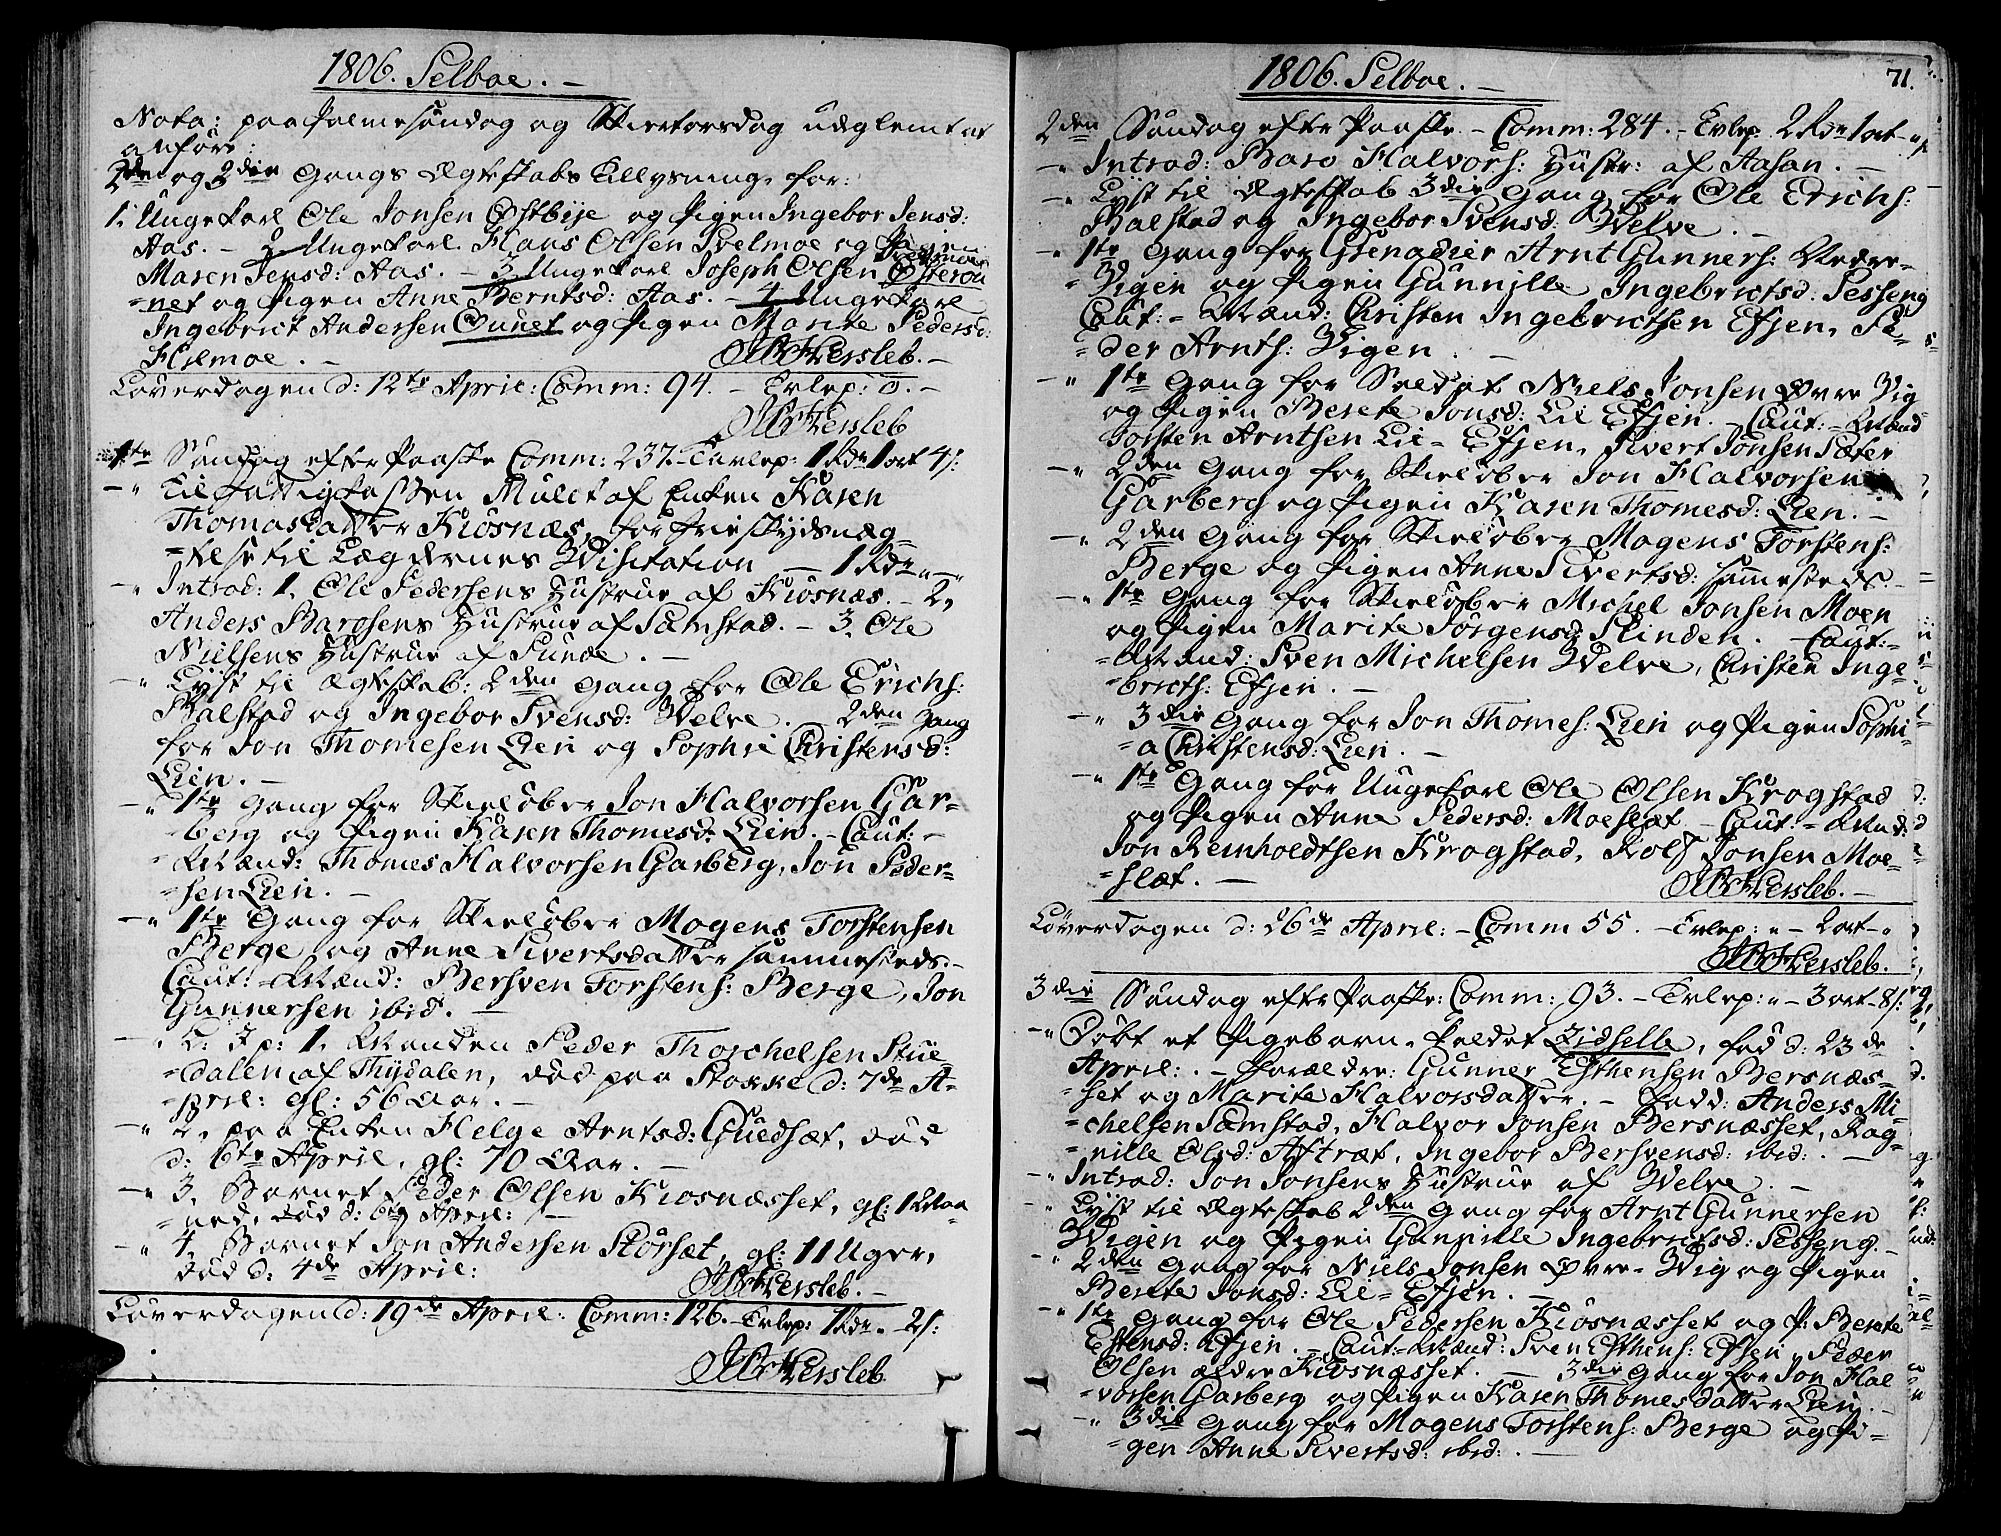 1806. Selboe. —
Nota: paa Palmesöndag og Skiertorsdag udglemt at
anföre:
2den og 3die Gangs Ægteskabs Tillysning, for:
1. Ungekarl Ole Jonsen Østbye og Pigen Ingebor Jensd:
Aas. — 2 Ungekarl Hans Olsen Svelmoe og Pigen
Maren Jensd: Aas. — 3. Ungekarl Joseph Olsen Østerou
=net og Pigen Anne Berntsd: Aas. — 4 Ungekarl
Ingebrict Andersen Ouuet og Pigen Marite Pedersd:
Hilmoe. — HBHersleb. —
Löverdagen d: 12te April: Comm: 94. — Tvlep: 0. —
HBHersleb
1te Söndag efter Paaske Comm: 237. — Tavlep: 1 Rdr 1 ort 4 s:
—" Til Fattigkassen Mulct af Enken Karen
Thomasdatter Kiösnæs, for Frieskydsnæg-
=telse til Lægdernes Visitation — 1 Rdr " — "
—" Introd: 1. Ole Pedersens Hustrue af Kiosnæs. — 2,
Anders Barosens Hustrue af Samstad. — 3. Ole
Nielsens Hustrue af Funde. —
—" Lyst til Ægteskab: 2den Gang for Ole Erichs:
Balstad og Ingebor Svensd: Velve. — 2den Gang
for Jon Thomesen Lien og Sophie Christensd:
Lien. —
—" 1te Gang for Skielöber Jon Halvorsen Gar-
=berg og Pigen Karen Thomesd: Lien. — Caut: —
=Mænd: Thomes Halvorsen Garberg, Jon Peder-
=sen Lien. —
—" 1te Gang for Skielöber Mogens Torstensen
Berge, og Anne Sivertsdatter sammesteds. —
Caut: Mænd: Bersven Torstens: Berge, Jon
Gunnersen ibid. —
—" L: J p: 1. Manden Peder Thorchelsen Stue
=dalen af Thydalen, död paa Stokke d: 7de A-
=pril: gl: 56 Aar. —
—" 2, paa Enken Helge Arntsd: Guedsæt, död
d: 6te April, gl: 70 Aar. —
—" 3, Barnet Peder Olsen Kiosnæsset, gl: 1 Maa-
=ned, död d: 6te April: —
—" 4, Barnet Jon Andersen Storsæt, gl: 11 Uger,
död d: 4de April: HBHersleb. —
Löverdagen d: 19de April: Comm: 126. — Tvlep: 1 Rdr. — 2 s:
HBHersleb
1806. Selboe. —
71.
2den Söndag efter Paaske — Comm: 284. — Tvlep: 2 Rdr 1 ort — "
—" Introd: Baro Halvors: Hustr: af Aasan. —
—" Lyst til Ægteskab 3die Gang for Ole Erichs:
Balstad og Ingebor Svensd: Velve. —
—" 1te Gang for Grenadier Arnt Gunners: Nedre-
=Vigen og Pigen Gunnille Ingebrictsd: Sesseng
Caut: — Mænd: Christen Ingebrictsen Efjen, Pe-
=der Arnts: Vigen. —
—" 1te Gang for Soldat Niels Jonsen Øvre Vig
og Pigen Berete Jonsd: Lil Efjen. — Caut: — Mænd
Torsten Arntsen Lil- Efjen, Sivert Jonsen Sæter
—" 2den Gang for Skielöber Jon Halvorsen
Garberg og Pigen Karen Thomesd: Lien. —
—" 2den Gang for Skielöber Mogens Torstens:
Berge og Pigen Anne Sivertsd: sammesteds. —
—" 1te Gang for Skielöber Michel Jonsen Moen
og Pigen Marite Jörgensd: Slinden. — Caut:
=Mænd: Sven Michelsen Velve, Christen Inge-
=bricts: Efjen. —
—" 3die Gang for Jon Thomes: Lien og Pigen Sophi-
=a Christensd: Lien. —
—" 1te Gang for Ungekarl Ole Olsen Krogstad
og Pigen Anne Pedersd: Moeslæt — Caut: — Mænd:
Jon Reinholdtsen Krogstad, Rolf Jonsen Moe-
=slæt. — HBHersleb. —
Löverdagen d: 26de April: — Comm 55. — Tvlep: " — 2 ort — "
HBHersleb.
3die Söndag efter Paaske: Comm: 93. — Tvlep: " — 3 ort — 8 s:
—" Döbt et Pigebarn, kaldet Zidselle, föd d: 23de
April: . — Forældre: Gunner Esthensen Bersnæs-
=set og Marite Halvorsdatter. — Fadd: Anders Mi-
=chelsen Samstad, Halvor Jonsen Bersnæsset, Rag-
=nille Olsd: Aftræt, Ingebor Bersvensd: ibid: . —
—" Introd: Jon Jonsens Hustrue af Velve. —
—" Lyst til Ægteskab 2den Gang for Arnt Gunnersen
Vigen og Pigen Gunnille Ingebrictsd: Sesseng. —
—" 2den Gang for Niels Jonsen Øvre- Vig og Pigen
Berete Jonsd: Lil- Efjen. —
—" 1te Gang for Ole Pedersen Kiosnæsset og P: Berete
Estensd: Efjen. — Caut: Mænd: Sven Esthens: Efjen, Peder
Olsen ældre Kiosnæsset. — 3die Gang for Jon Hal
=vorsen Garberg og Pigen Karen Thomesdatter Lien. —
—" 3die Gang for Mogens Torstens: Berge og Pi-
=gen Anne Sivertsd: ibid: . —